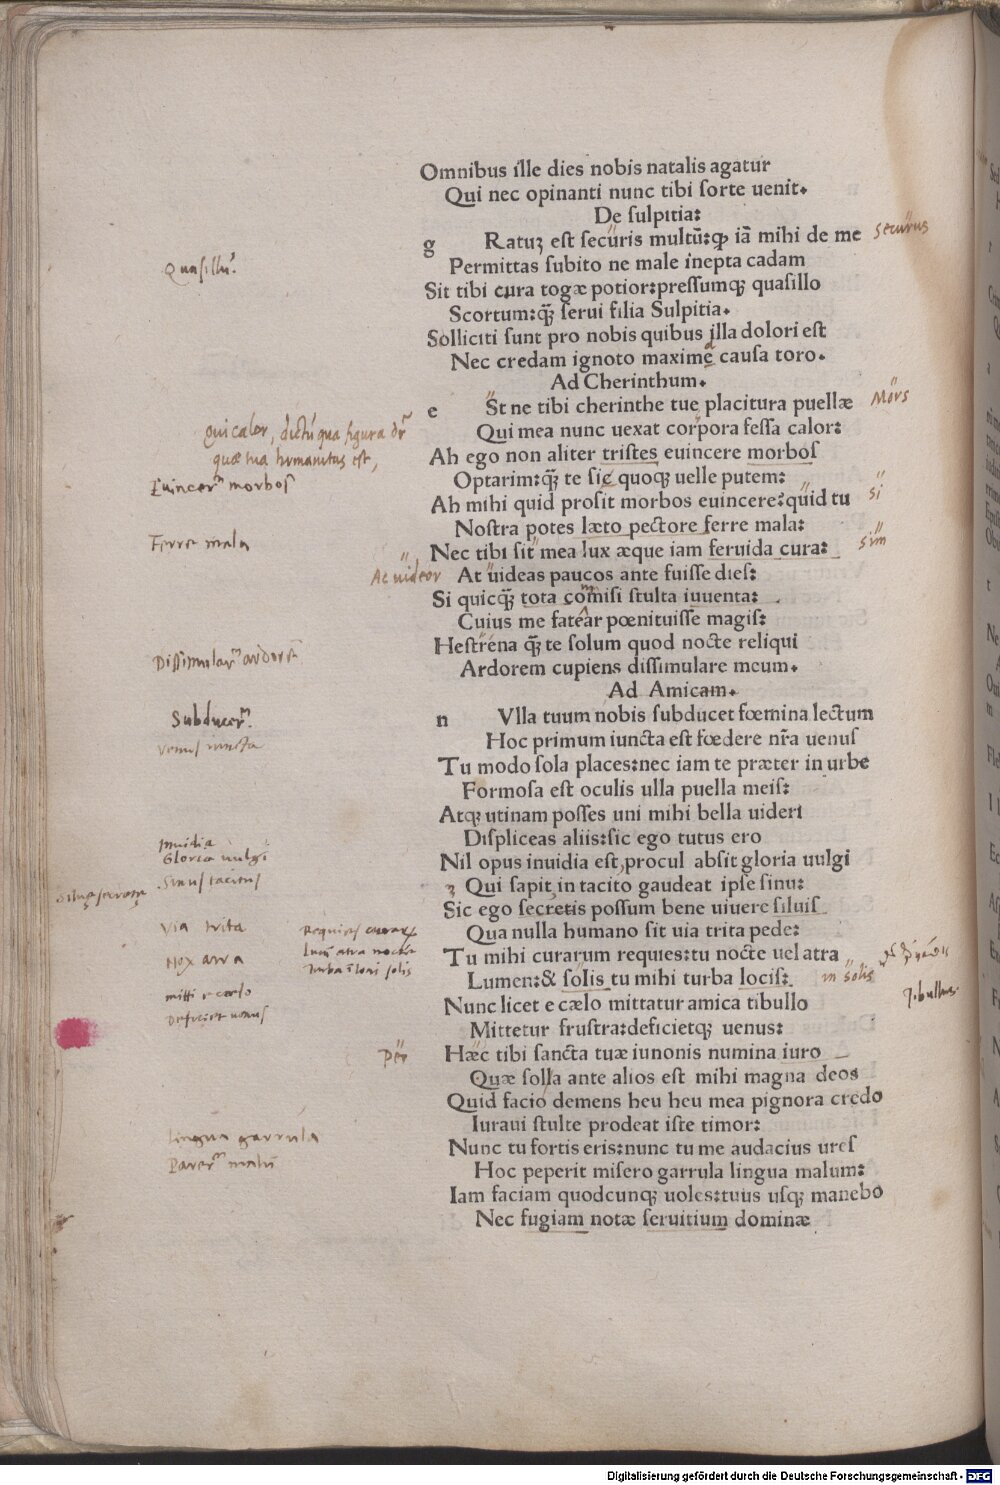 Omnibus ille dies nobis natalis agatur
Qui nec opinanti nunc tibi sorte uenit.
De sulpitia:
g Ratuʒ est securis multū:ꝙ iã mihi de me securus
Quasillũ.
Permittas subito ne male inepta cadam
Sit tibi cura togæ potior:pressumqꝫ quasillo
Scortum:q̃ꝫ serui filia Sulpitia.
Solliciti sunt pro nobis quibus illa dolori est
Nec credam ignoto maxime causa toro.
Ad Cherinthum.
e St ne tibi cherinthe tue placitura puellæ Mors
Qui mea nunc uexat corpora fessa calor:
Ah ego non aliter tristes euincere morbos
Euincer̃ morbos
Optarim:q̃ꝫ te sic quoqꝫ uelle putem:
Ah mihi quid prosit morbos euincere?quid tu si
Nostra potes læto pectore ferre mala:
Ferre mala
Nec tibi sit mea lux æque iam feruida cura: sim
Ac uideor At uideas paucos ante fuisse dies:
Si quicq̃ꝫ tota comisi stulta iuuenta:
Cuius me fatear pœnituisse magis:
Hesterna q̃ꝫ te solum quod nocte reliqui
Dissimular̃ ardorẽ
Ardorem cupiens dissimulare meum.
Ad Amicam.
Subducer̃.
n Vlla tuum nobis subducet fœmina lectum
Venus iuncta
Hoc primum iuncta est fœdere nr̃a uenus
Tu modo sola places:nec iam te præter in urbe
Formosa est oculis ulla puella meis:
Atqꝫ utinam posses uni mihi bella uideri
Displiceas aliis:sic ego tutus ero
Inuidia
Gloria uulgi
Nil opus inuidia est,procul absit gloria uulgi
Sinus tacitus
Qui sapit in tacito gaudeat ipse sinu:
Siluę secretę
Sic ego secretis possum bene uiuere siluis
Via trita
Qua nulla humano sit uia trita pede:
Tu mihi curarum requies:tu nocte uel atra
Nox atra
Lumen:& solis tu mihi turba locis: in solis
Nunc licet e cælo mittatur amica tibullo Tibullus.
mitti e caelo
Deficiet uenus
Mittetur frustra:deficietqꝫ uenus:
Per Hæc tibi sancta tuæ iunonis numina iuro
Quæ solla ante alios est mihi magna deos
Quid facio demens heu heu mea pignora credo
Iuraui stulte prodeat iste timor:
Lingua garrula
Nunc tu fortis eris:nunc tu me audacius ures
Parer̃ malũ
Hoc peperit misero garrula lingua malum:
Iam faciam quodcunqꝫ uoles:tuus usqꝫ manebo
Nec fugiam notæ seruitium dominæ
Digitalisierung gefördert durch die Deutsche Forschungsgemeinschaft - DFG